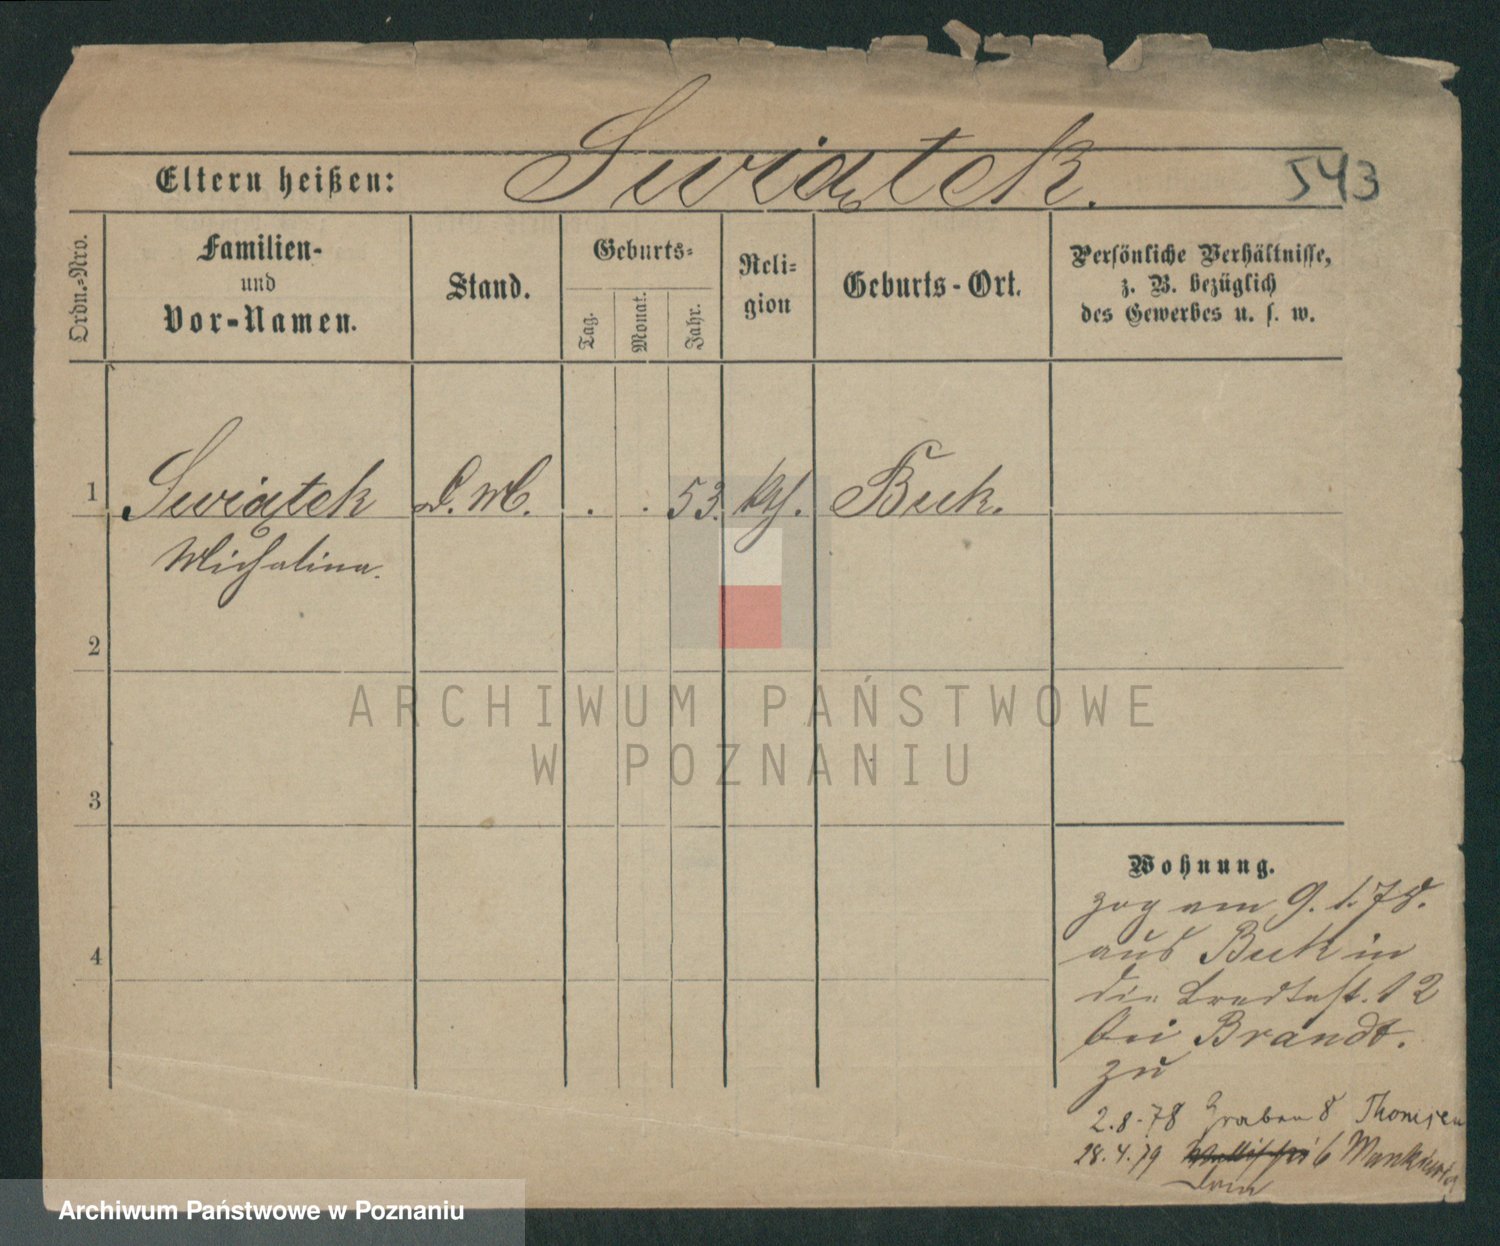 Eltern heißen: Swiątek. 543
Ordn.-Nro.
Familien-
und
Vor-Namen.
Stand.
Geburts-
Tag.
Monat.
Jahr.
Reli-
gion
Geburts-Ort.
Persönliche Verhältnisse,
z. B. bezüglich
des Gewerbes u. s. w.
1 Swiątek D. M. . . 53. kth. Buk.
Michalina.
2
3
4
ARCHIWUM PAŃSTWOWE
W POZNANIU
Wohnung.
zog am 9. 1. 78.
aus Buk in
die 12
bei Brandt.
zu
2.8.78 Graben 8 Thomsen
28.4.79 6
Archiwum Państwowe w Poznaniu